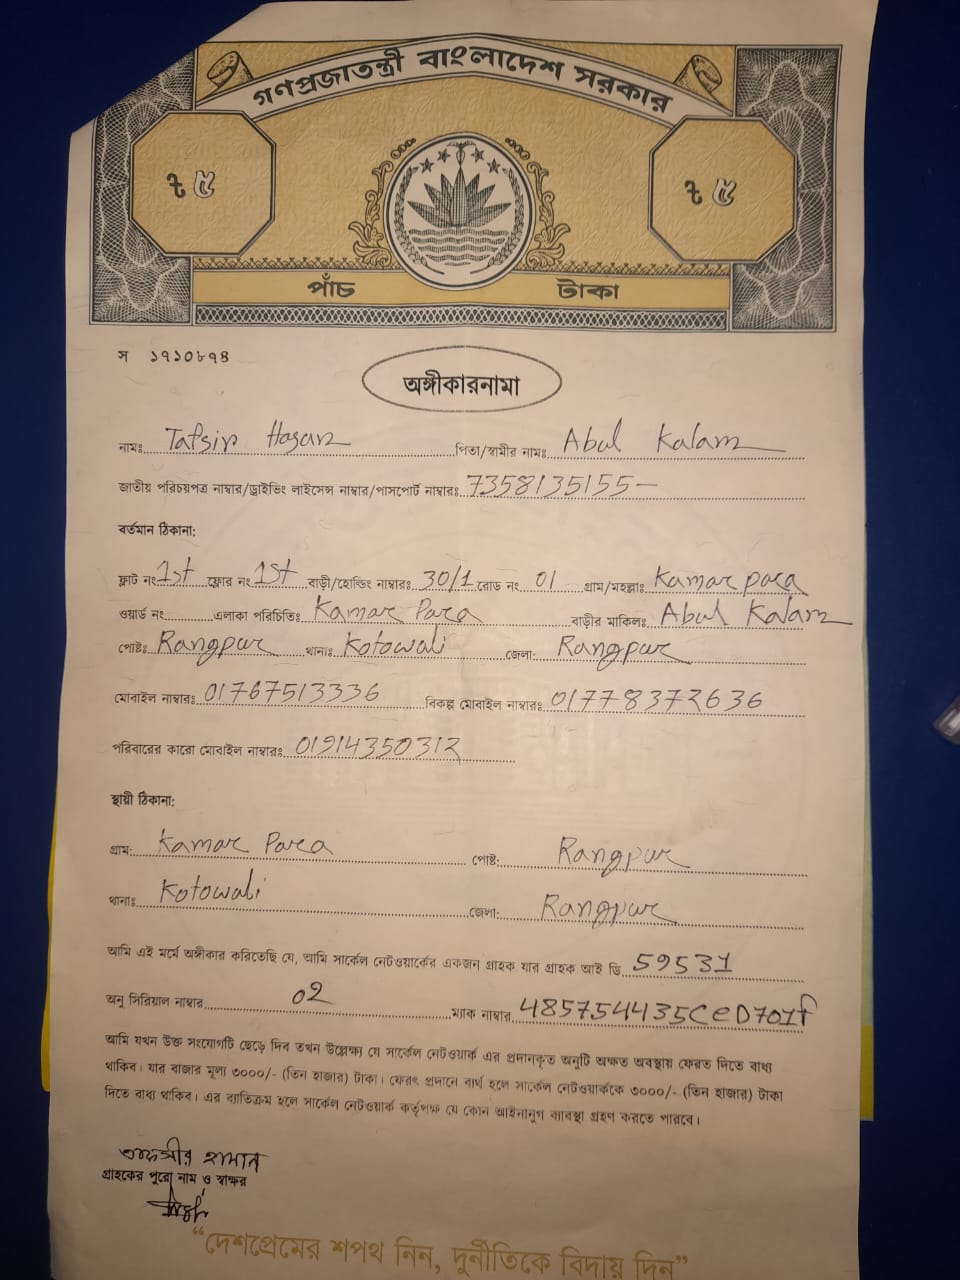 গণপ্রজাতন্ত্রী বাংলাদেশ সরকার
৳ ৫ ৳ ৫
পাঁচ টাকা
স ১৭১০৮৭৪
অঙ্গীকারনামা
নামঃ Tafsir Hasan পিতা/স্বামীর নামঃ Abul Kalam
জাতীয় পরিচয়পত্র নাম্বার/ড্রাইভিং লাইসেন্স নাম্বার/পাসপোর্ট নাম্বারঃ 7358135155
বর্তমান ঠিকানা:
ফ্লাট নং 1st ফ্লোর নং 1st বাড়ী/হোল্ডিং নাম্বারঃ 30/1 রোড নং 01 গ্রাম/মহল্লাঃ Kamar para
ওয়ার্ড নং এলাকা পরিচিতিঃ Kamar Para বাড়ীর মাকিলঃ Abul Kalam
পোষ্টঃ Rangpur থানাঃ Kotowali জেলা: Rangpur
মোবাইল নাম্বারঃ 01767513336 বিকল্প মোবাইল নাম্বারঃ 01778372636
পরিবারের কারো মোবাইল নাম্বারঃ 01914350312
স্থায়ী ঠিকানা:
গ্রাম: Kamar Para পোষ্ট: Rangpur
থানাঃ Kotowali জেলা: Rangpur
আমি এই মর্মে অঙ্গীকার করিতেছি যে, আমি সার্কেল নেটওয়ার্কের একজন গ্রাহক যার গ্রাহক আই ডি 59531
অনু সিরিয়াল নাম্বার 02 ম্যাক নাম্বার 485754435CeD701f
আমি যখন উক্ত সংযোগটি ছেড়ে দিব তখন উল্লেক্ষ্য যে সার্কেল নেটওয়ার্ক এর প্রদানকৃত অনুটি অক্ষত অবস্থায় ফেরত দিতে বাধ্য
থাকিব। যার বাজার মূল্য ৩০০০/- (তিন হাজার) টাকা। ফেরৎ প্রদানে ব্যর্থ হলে সার্কেল নেটওয়ার্ককে ৩০০০/- (তিন হাজার) টাকা
দিতে বাধ্য থাকিব। এর ব্যতিক্রম হলে সার্কেল নেটওয়ার্ক কর্তৃপক্ষ যে কোন আইনানুগ ব্যাবস্থা গ্রহণ করতে পারবে।
তাফসীর হাসান
গ্রাহকের পুরো নাম ও স্বাক্ষর
“দেশপ্রেমের শপথ নিন, দুর্নীতিকে বিদায় দিন”